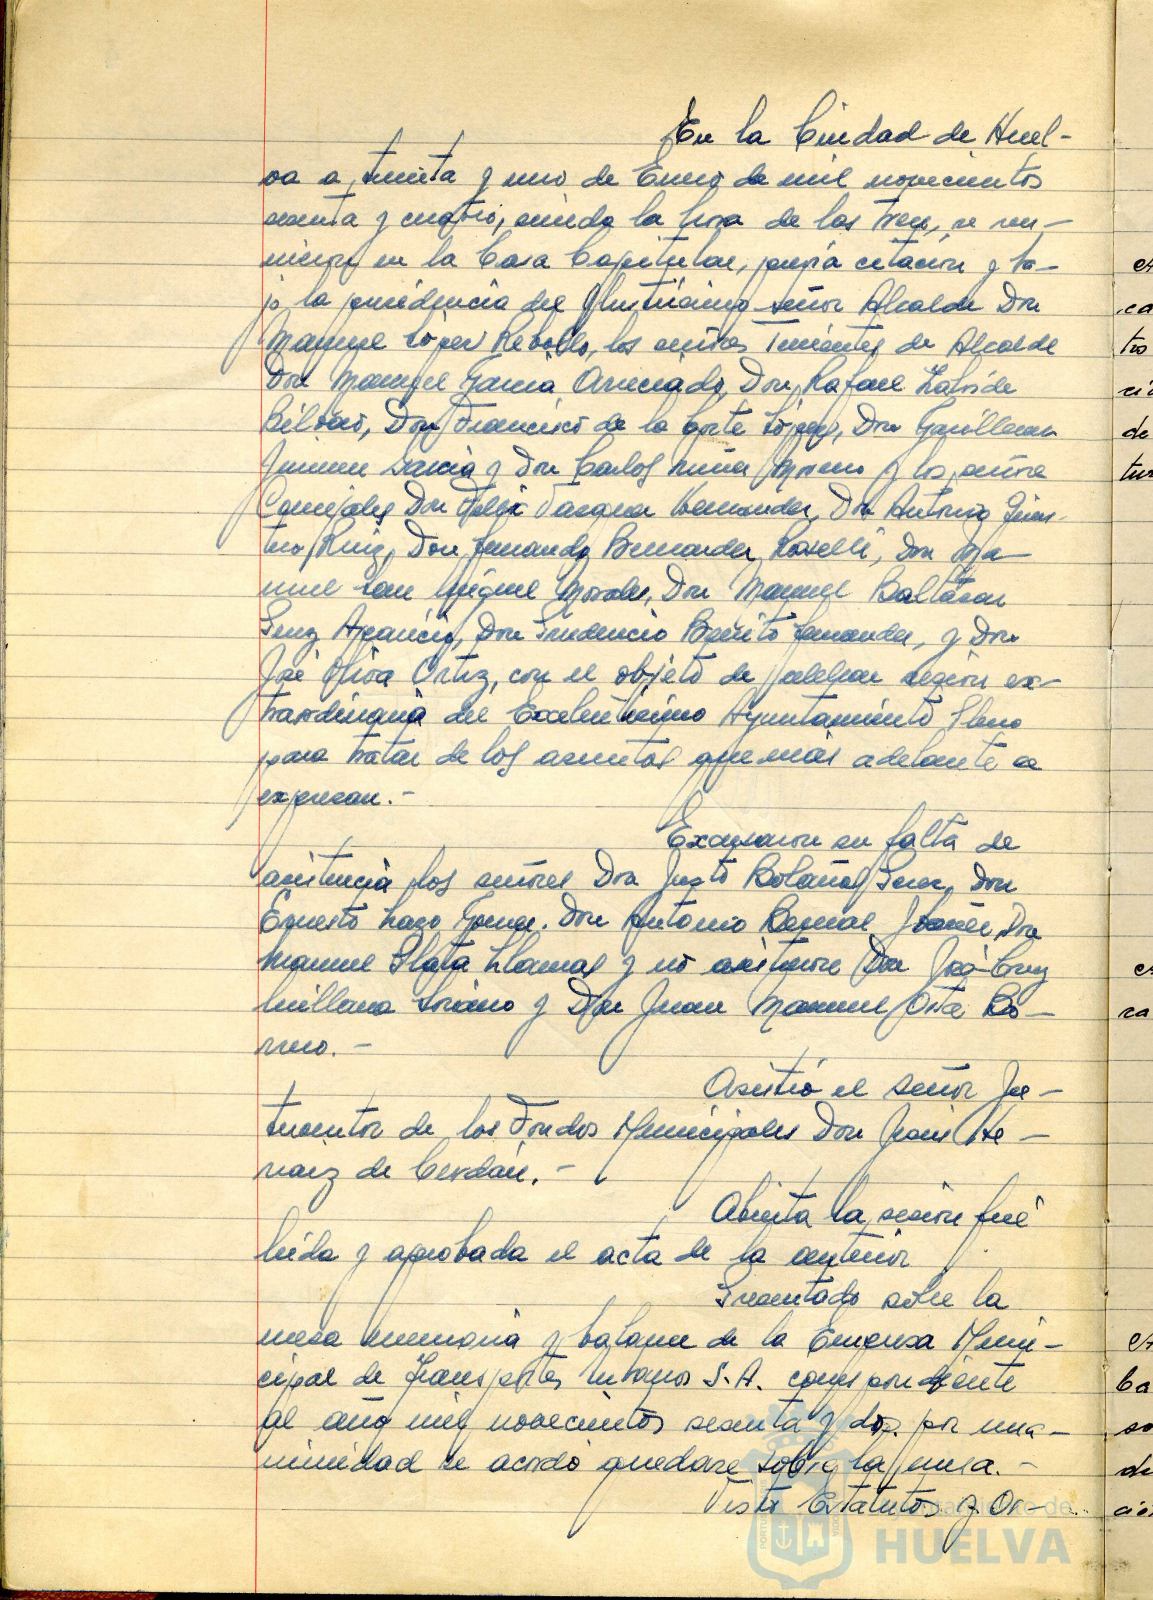 En la Ciudad de Huel-
va a treinta y uno de Enero de mil novecientos
sesenta y cuatro, siendo la hora de las trece, se reu-
nieron en la Casa Capitular, previa citación y ba-
jo la presidencia del Ilustrísimo señor Alcalde Don
Manuel López Rebollo, los señores Tenientes de Alcalde
Don Manuel García Don Rafael
Bilbao, Don Francisco de la Corte López, Don Guillermo
Jimenez García y Don Carlos Núñez Moreno y los señores
Concejales Don Felix Vazquez Hernandez, Don Antonio
Ruiz, Don Fernando Bernardez Roselli, Don Ma-
nuel San Miguel Morales, Don Manuel Baltasar
Aparicio, Don Prudencio Benito Fernandez, y Don
José Oliva Ortiz, con el objeto de celebrar sesión ex-
traordinaria del Excelentísimo Ayuntamiento Pleno
para tratar de los asuntos que más adelante se
expresan.-
Excusaron su falta de
asistencia los señores Don Justo Bolaños Perez, Don
Ernesto Lazo Don Antonio Bernal Don
Manuel Plata Llamas y no asistieron Don José Cruz
Millana Soriano y Don Juan Manuel Orta Bo-
rrero.-
Asistió el señor In-
terventor de los Fondos Municipales Don Jesús He-
rraiz de Cerdán.-
Abierta la sesión fué
leida y aprobada el acta de la anterior
Presentado sobre la
mesa memoria y balance de la Empresa Muni-
cipal de Transportes Urbanos S.A. correspondiente
al año mil novecientos sesenta y dos por una-
nimidad se acordó quedase sobre la mesa.-
Visto Estatutos y Or-
Ayuntamiento de
HUELVA